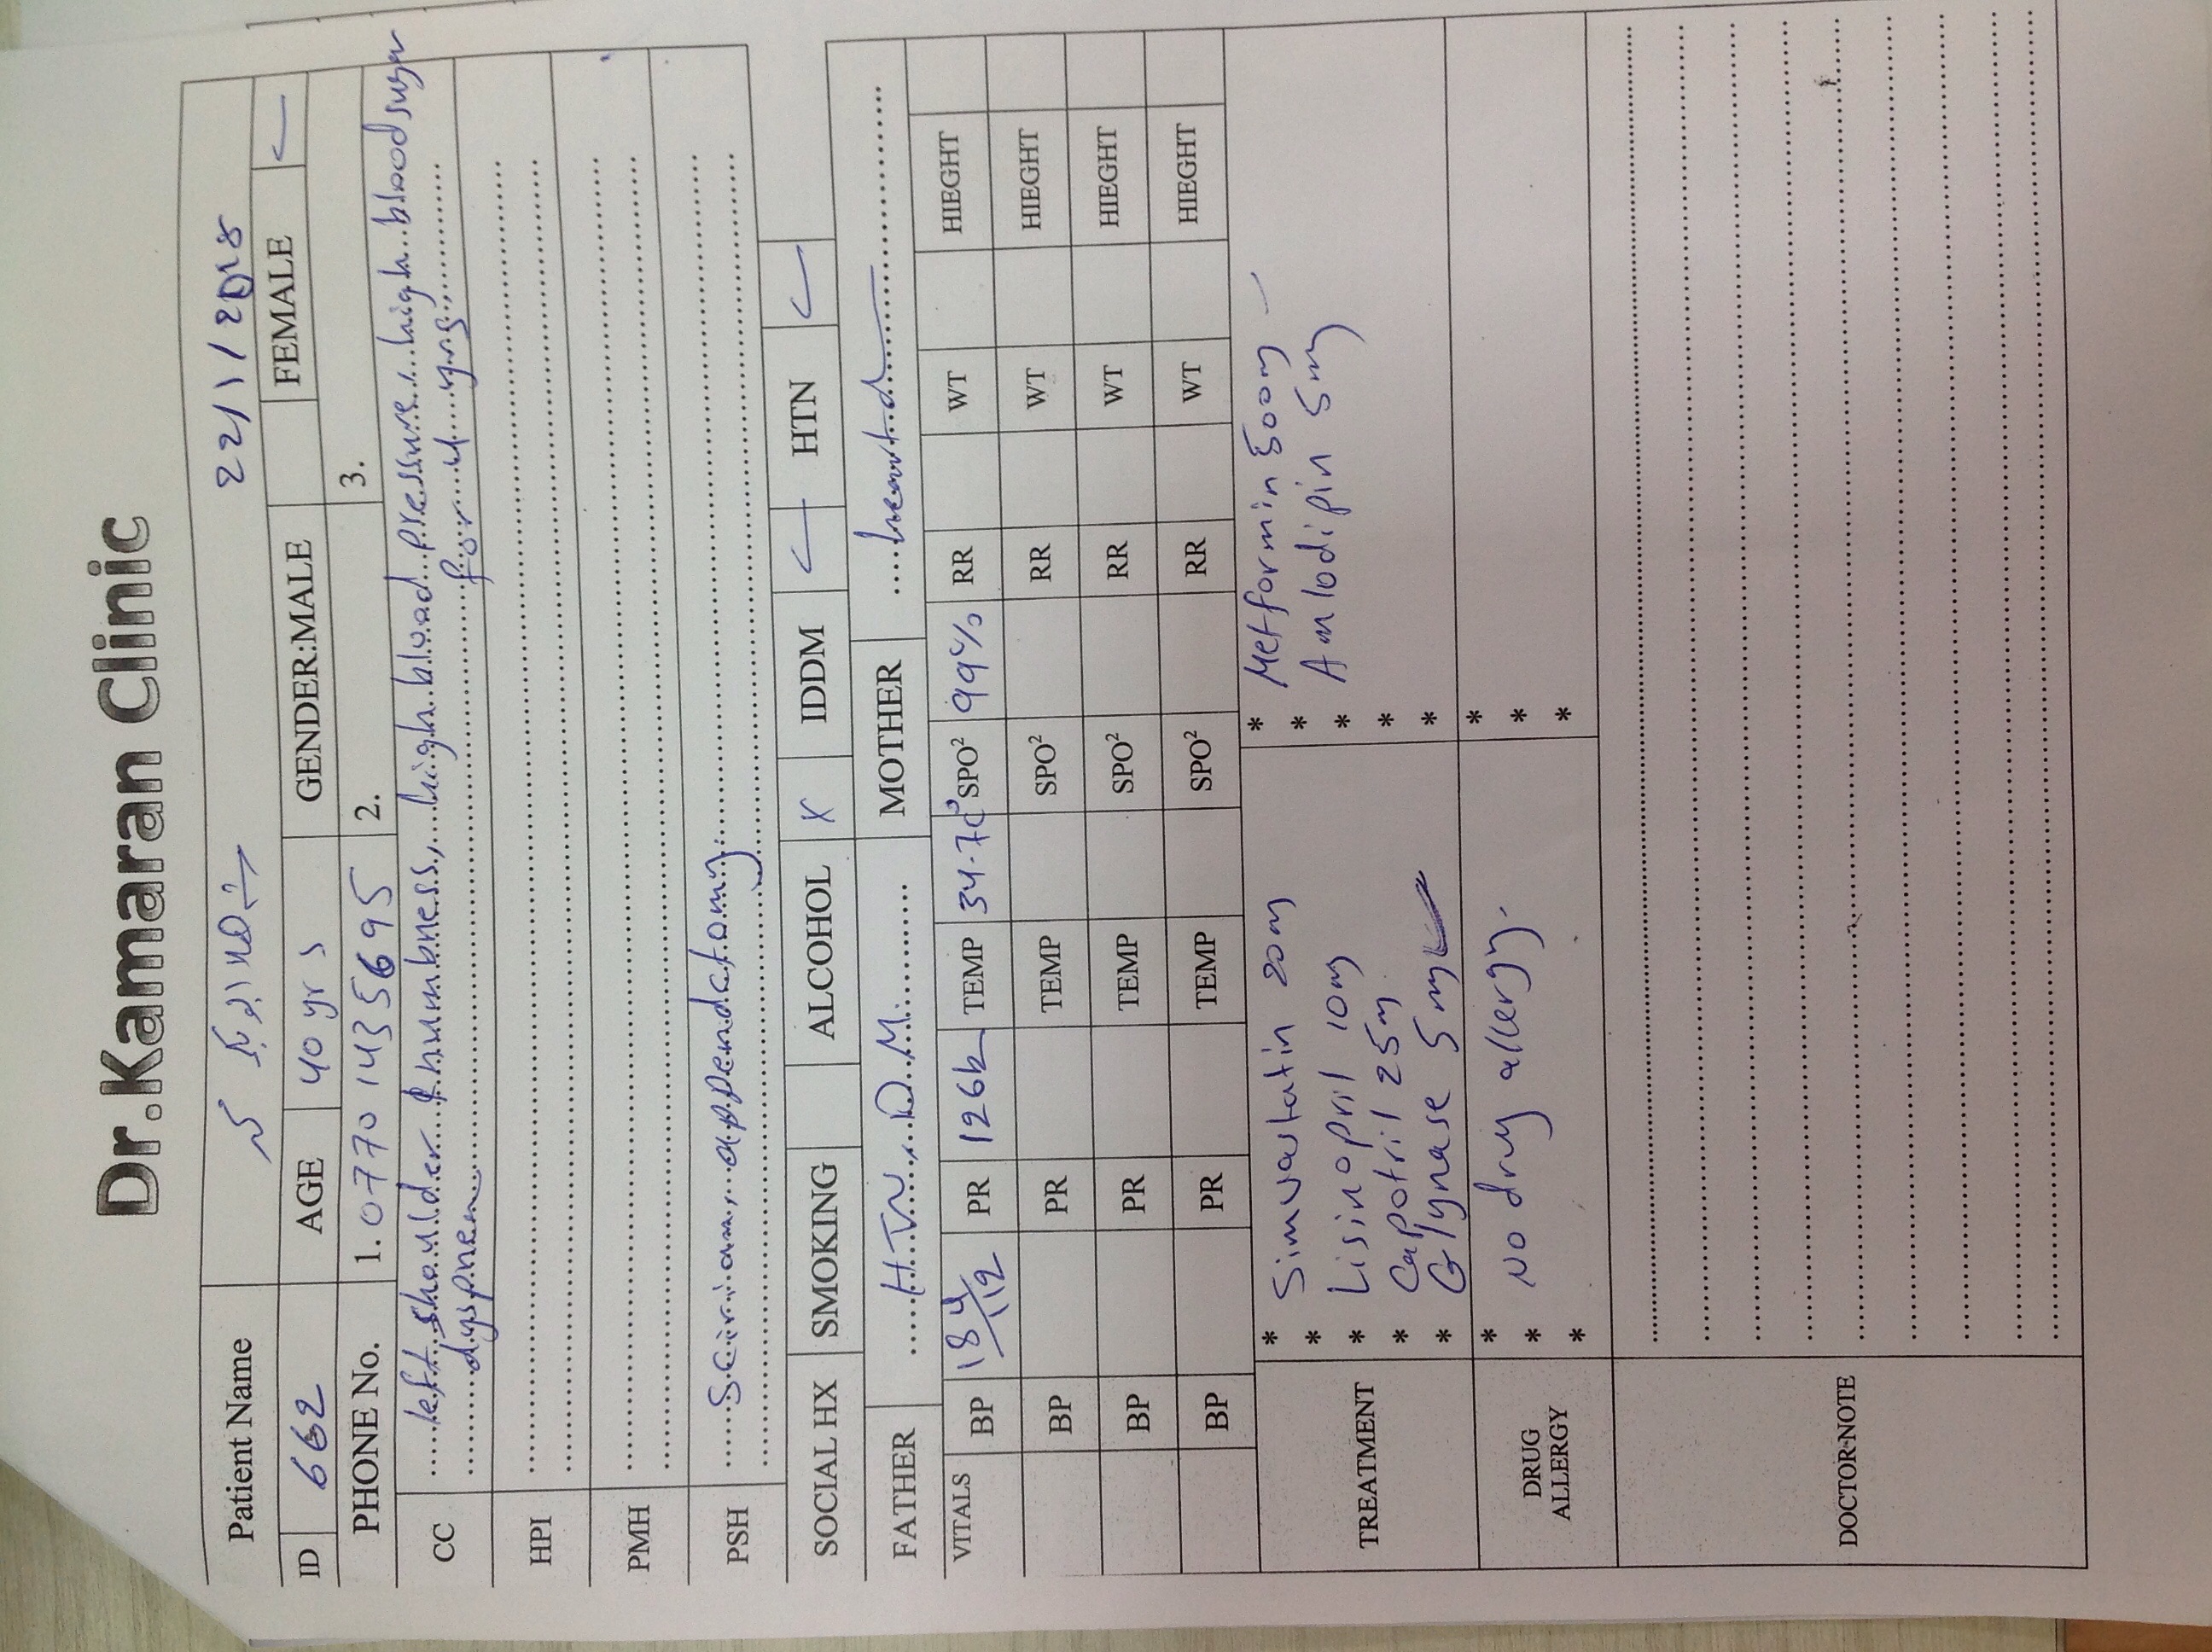 Dr.Kamaran Clinic
Patient Name 22/1/2018
ID 662 AGE 40 yrs GENDER:MALE FEMALE
PHONE No. 1. 0770 143 5695 2. 3.
CC left shoulder & numbness, high blood pressure, high blood sugar
dyspnea for 4 yrs
HPI
PMH
PSH
SOCIAL HX SMOKING ALCOHOL X IDDM HTN
FATHER H.T.N., D.M. MOTHER heart d
VITALS BP 184/112 PR 126b TEMP 34.7c° SPO² 99% RR WT HIEGHT
BP PR TEMP SPO² RR WT HIEGHT
BP PR TEMP SPO² RR WT HIEGHT
BP PR TEMP SPO² RR WT HIEGHT
TREATMENT
* Simvastatin 20mg * Metformin 500mg
* Lisinopril 10mg * Amlodipin 5mg
* Capotril 25mg *
* Glynase 5mg *
* *
DRUG ALLERGY
* No drug allergy. *
* *
* *
DOCTOR-NOTE